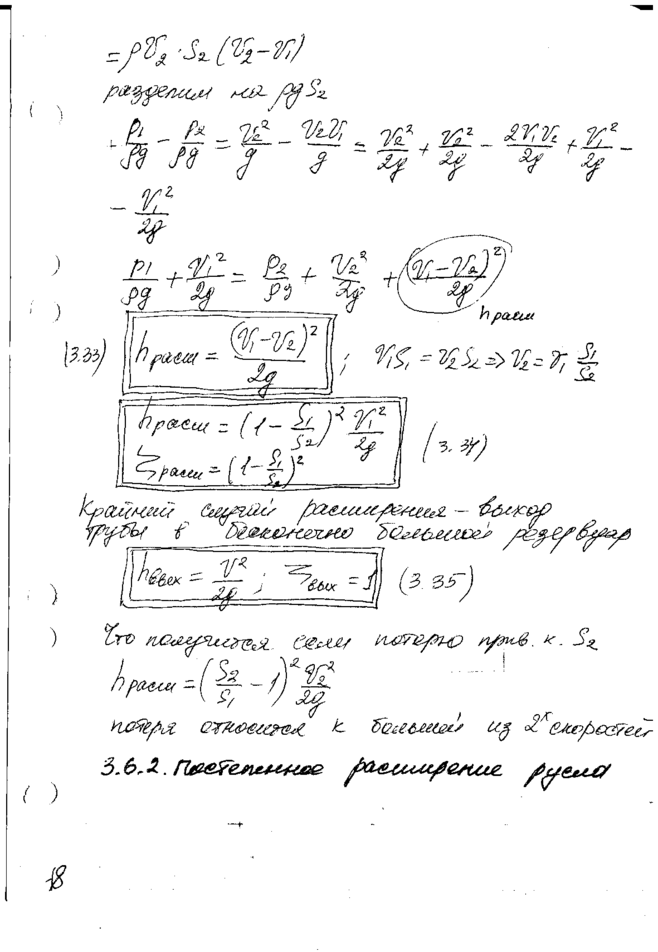 = ρV₂·S₂(V₂−V₁)
разделим на ρgS₂
+ P₁/ρg − P₂/ρg = V₂²/g − V₂V₁/g = V₂²/2g + V₂²/2g − 2V₁V₂/2g + V₁²/2g −
− V₁²/2g
P₁/ρg + V₁²/2g = P₂/ρg + V₂²/2g + (V₁−V₂)²/2g
hрасш
(3.33) hрасш = (V₁−V₂)²/2g ; V₁S₁ = V₂S₂ => V₂ = V₁ S₁/S₂
hрасш = (1 − S₁/S₂)² V₁²/2g
ζрасш = (1 − S₁/S₂)² (3.34)
Крайний случай расширения – выход
трубы в бесконечно большой резервуар
hвых = V²/2g ; ζвых = 1 (3.35)
Что получится если потерю прив. к. S₂
hрасш = (S₂/S₁ − 1)² V₂²/2g
потеря относится к большей из 2ˣ скоростей
3.6.2. Постепенное расширение русла
18